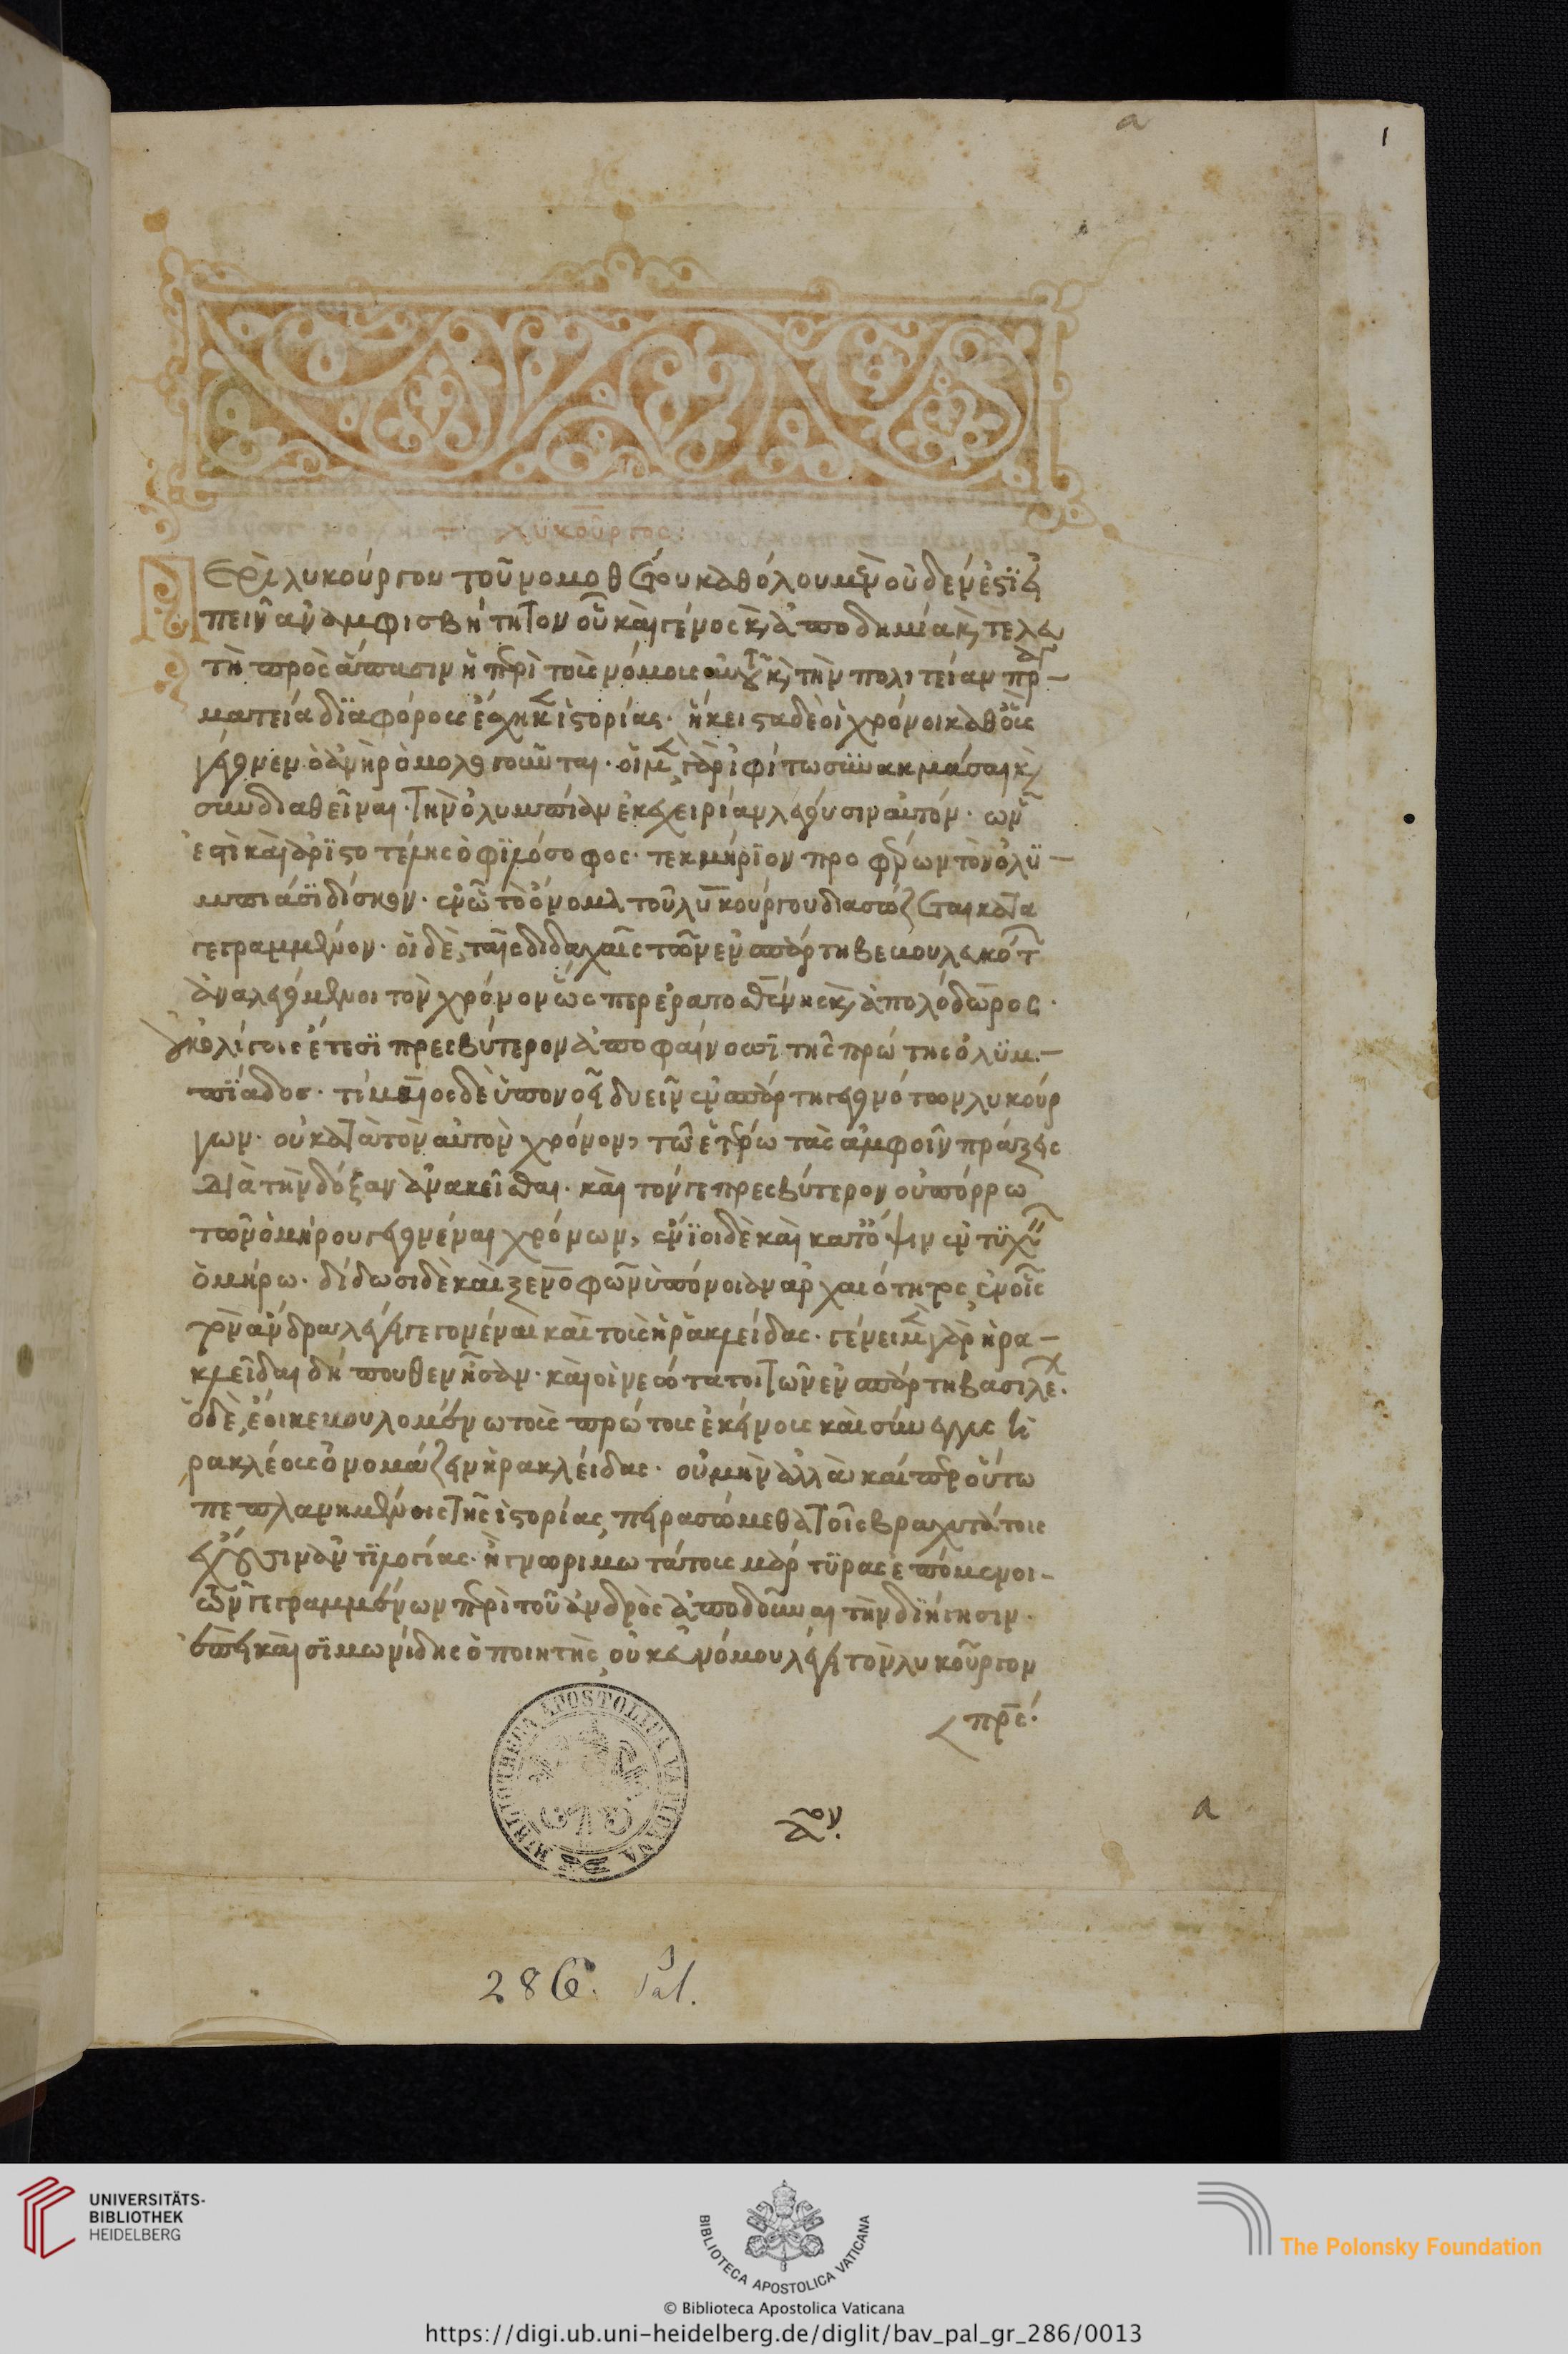 a
1
λυκοῦργος:
Περὶ λυκούργου τοῦ νομοθέτου καθόλου μὲν οὐδέν ἐστϊ εἰ
πεῖν αναμφισβήτητον οὗ καὶ γένος κ(αὶ) ἀποδημία κ(αὶ) τελευ
τὴ πρὸς ἅπασιν ἡ περὶ τοὺς νόμους αὐτοῦ κ(αὶ) τὴν πολιτείαν πρα
ματεία δϊαφόρους ἔσχηκεν ἱστορίας· ἥκιστα δὲ οἱ χρόνοι καθ οὓς
γέγονεν ὁ ἀνὴρ ὁμολογοῦνται· οἱ μὲν γὰρ ἰφίτω συνακμάσαι κ(αὶ)
συνδιαθεῖναι τὴν ὀλυμπιὰν ἐκεχειρίαν λέγουσιν αὐτόν· ων
ἐστὶ καὶ ἀρϊστοτέλης ὁ φϊλόσοφος· τεκμήρϊον προφέρων τὸν ὀλϋ
μπιάσϊ δίσκον· ἐν ᾧ τὸ ὄνομα τοῦ λυκούργου διασώζεται κατα
γεγραμμένον· οἱ δὲ, ταῖς διδαχαῖς τῶν ἐν σπάρτη βεβουλευκότ
ἀναλεγόμενοι τὸν χρόνον ὥσπερ ἐρατοσθένης κ(αὶ) ἀπολόδωρος·
οὐκ ὀλίγοις ἔτεσϊ πρεσβύτερον ἀποφαίνουσϊ τῆς πρώτης ὀλϋμ
πϊάδος· τίμαιος δὲ ὑπονοεῖ δυεῖν ἐν σπάρτη γεγονότων λυκούρ
γων· οὐ κατὰ τὸν αὐτὸν χρόνον, τῶ ἑτέρω τὰς ἀμφοῖν πράξεις
διὰ τὴν δόξαν ἀνακεῖσθαι· καὶ τόν γε πρεσβύτερον οὐ πόρρω
τῶν ὁμήρου γεγονέναι χρόνων, ἔνϊοι δὲ καὶ κατ' ὄψιν ἐντϋχεῖν
ὁμήρω· δίδωσι δὲ καὶ ξενοφῶν ὑπόνοιαν ἀρχαιότητος, ἐν οἷς
τὸν ἄνδρα λέγει γεγονέναι κατὰ τοὺς ἡρακλείδας· γένει μὲν γὰρ ἡρα
κλεῖδαι δή πουθεν ἦσαν· καὶ οἱ νεώτατοι τῶν ἐν σπάρτη βασιλέ·
ὁ δὲ, ἔοικε βουλομένω τοὺς πρώτους ἐκείνους καὶ σύνεγγυς ἡ
ρακλέους ὀνομάζειν ἡρακλείδας· οὐ μὴν ἀλλὰ καίπερ οὕτω
πεπλανημένοις τῆς ἱστορίας, πειρασόμεθα τοῖς βραχυτάτοις
ἔχουσιν ἀντϊλογίας· ἢ γνωριμωτάτους μάρτϋρας ἑπόμενοι
τῶν γεγραμμένων περὶ τοῦ ἀνδρὸς ἀποδοῦναι τὴν δϊήγησιν·
ἐπεὶ καὶ σϊμωνίδης ὁ ποιητὴς, οὐκ εὐνόμου λέγει τὸν λυκοῦργον
πρς·
αον·
a
BIBLIOTHECA APOSTOLICA VATICANA
286. Pal.
UNIVERSITÄTS-
BIBLIOTHEK
HEIDELBERG
BIBLIOTECA APOSTOLICA VATICANA
The Polonsky Foundation
© Biblioteca Apostolica Vaticana
https://digi.ub.uni-heidelberg.de/diglit/bav_pal_gr_286/0013